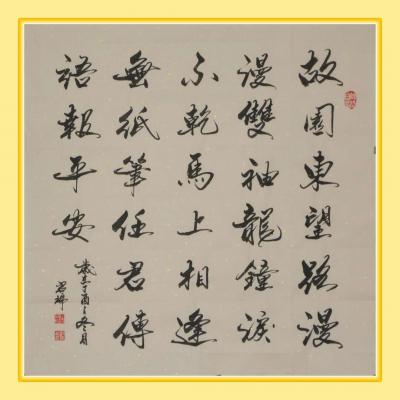 故園東望路漫
漫雙袖龍鐘淚
不乾馬上相逢
無紙筆任君傳
語報平安
歲在丁酉之冬月